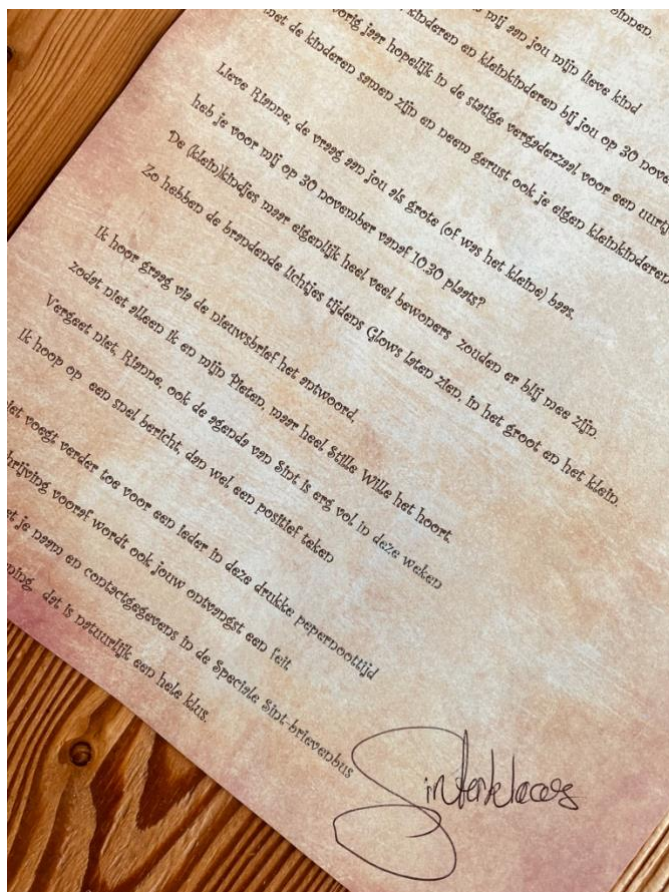 innen.
mij aan jou mijn lieve kind
orig jaar hopelijk in de statige vergaderzaal voor een uurtj
kinderen en kleinkinderen bij jou op 30 nove
met de kinderen samen zijn en neem gerust ook je eigen kleinkinderen
Lieve Rianne, de vraag aan jou als grote (of was het kleine) baas,
heb je voor mij op 30 november vanaf 10.30 plaats?
De (klein)kindjes maar eigenlijk heel veel bewoners zouden er blij mee zijn.
Zo hebben de brandende lichtjes tijdens Glows laten zien, in het groot en het klein.
Ik hoor graag via de nieuwsbrief het antwoord,
zodat niet alleen ik en mijn Pieten, maar heel Stille Wille het hoort.
Vergeet niet, Rianne, ook de agenda van Sint is erg vol in deze weken
Ik hoop op een snel bericht, dan wel een positief teken
iet voegt verder toe voor een ieder in deze drukke pepernoottijd
hrijving vooraf wordt ook jouw ontvangst een feit
et je naam en contactgegevens in de Speciale Sint-brievenbus
ming, dat is natuurlijk een hele klus.
Sinterklaas